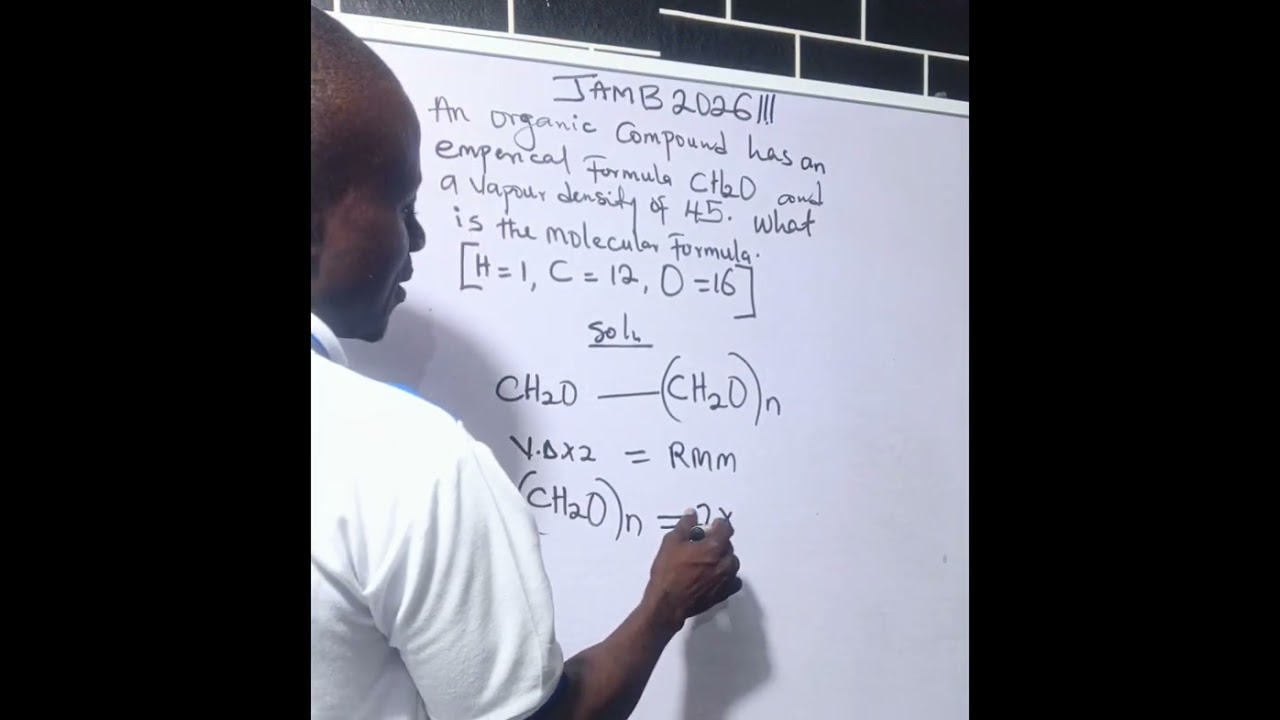 JAMB 2026!!!
An organic Compound has an
emperical Formula CH2O and
a vapour density of 45. What
is the molecular formula.
[H = 1, C = 12, O = 16]
Soln
CH2O — (CH2O)n
V.D x 2 = RMM
(CH2O)n = 2x